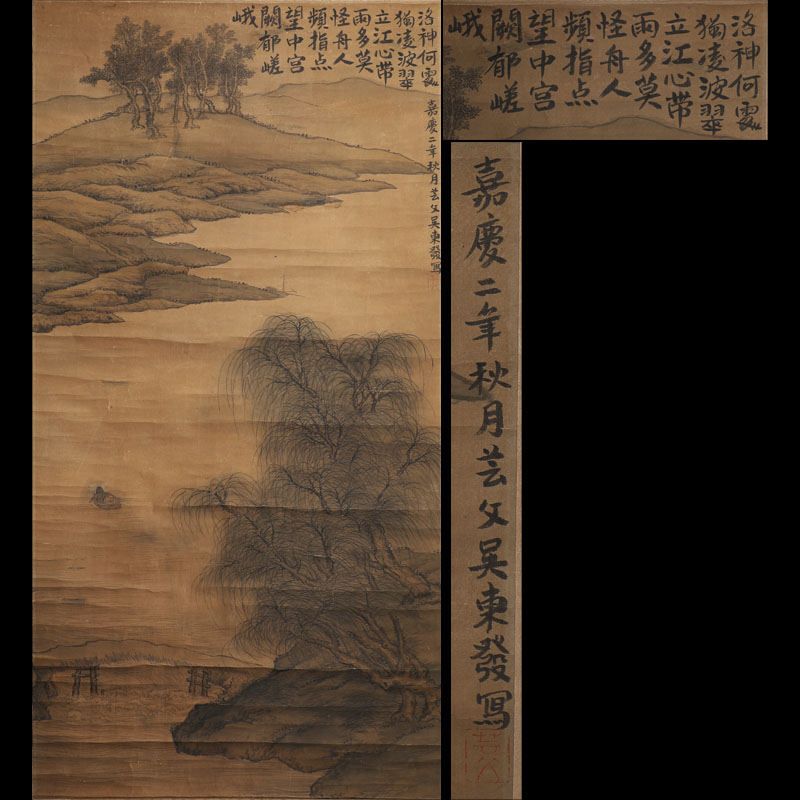 洛神何處
猶凌波翠
立江心帶
雨多莫
怪舟人
頻指点
望中宮
闕郁嵯
峨
嘉慶二年秋月芸父吳東發寫
洛神何處
猶凌波翠
立江心帶
雨多莫
怪舟人
頻指点
望中宮
闕郁嵯
峨
嘉慶二年秋月芸父吳東發寫